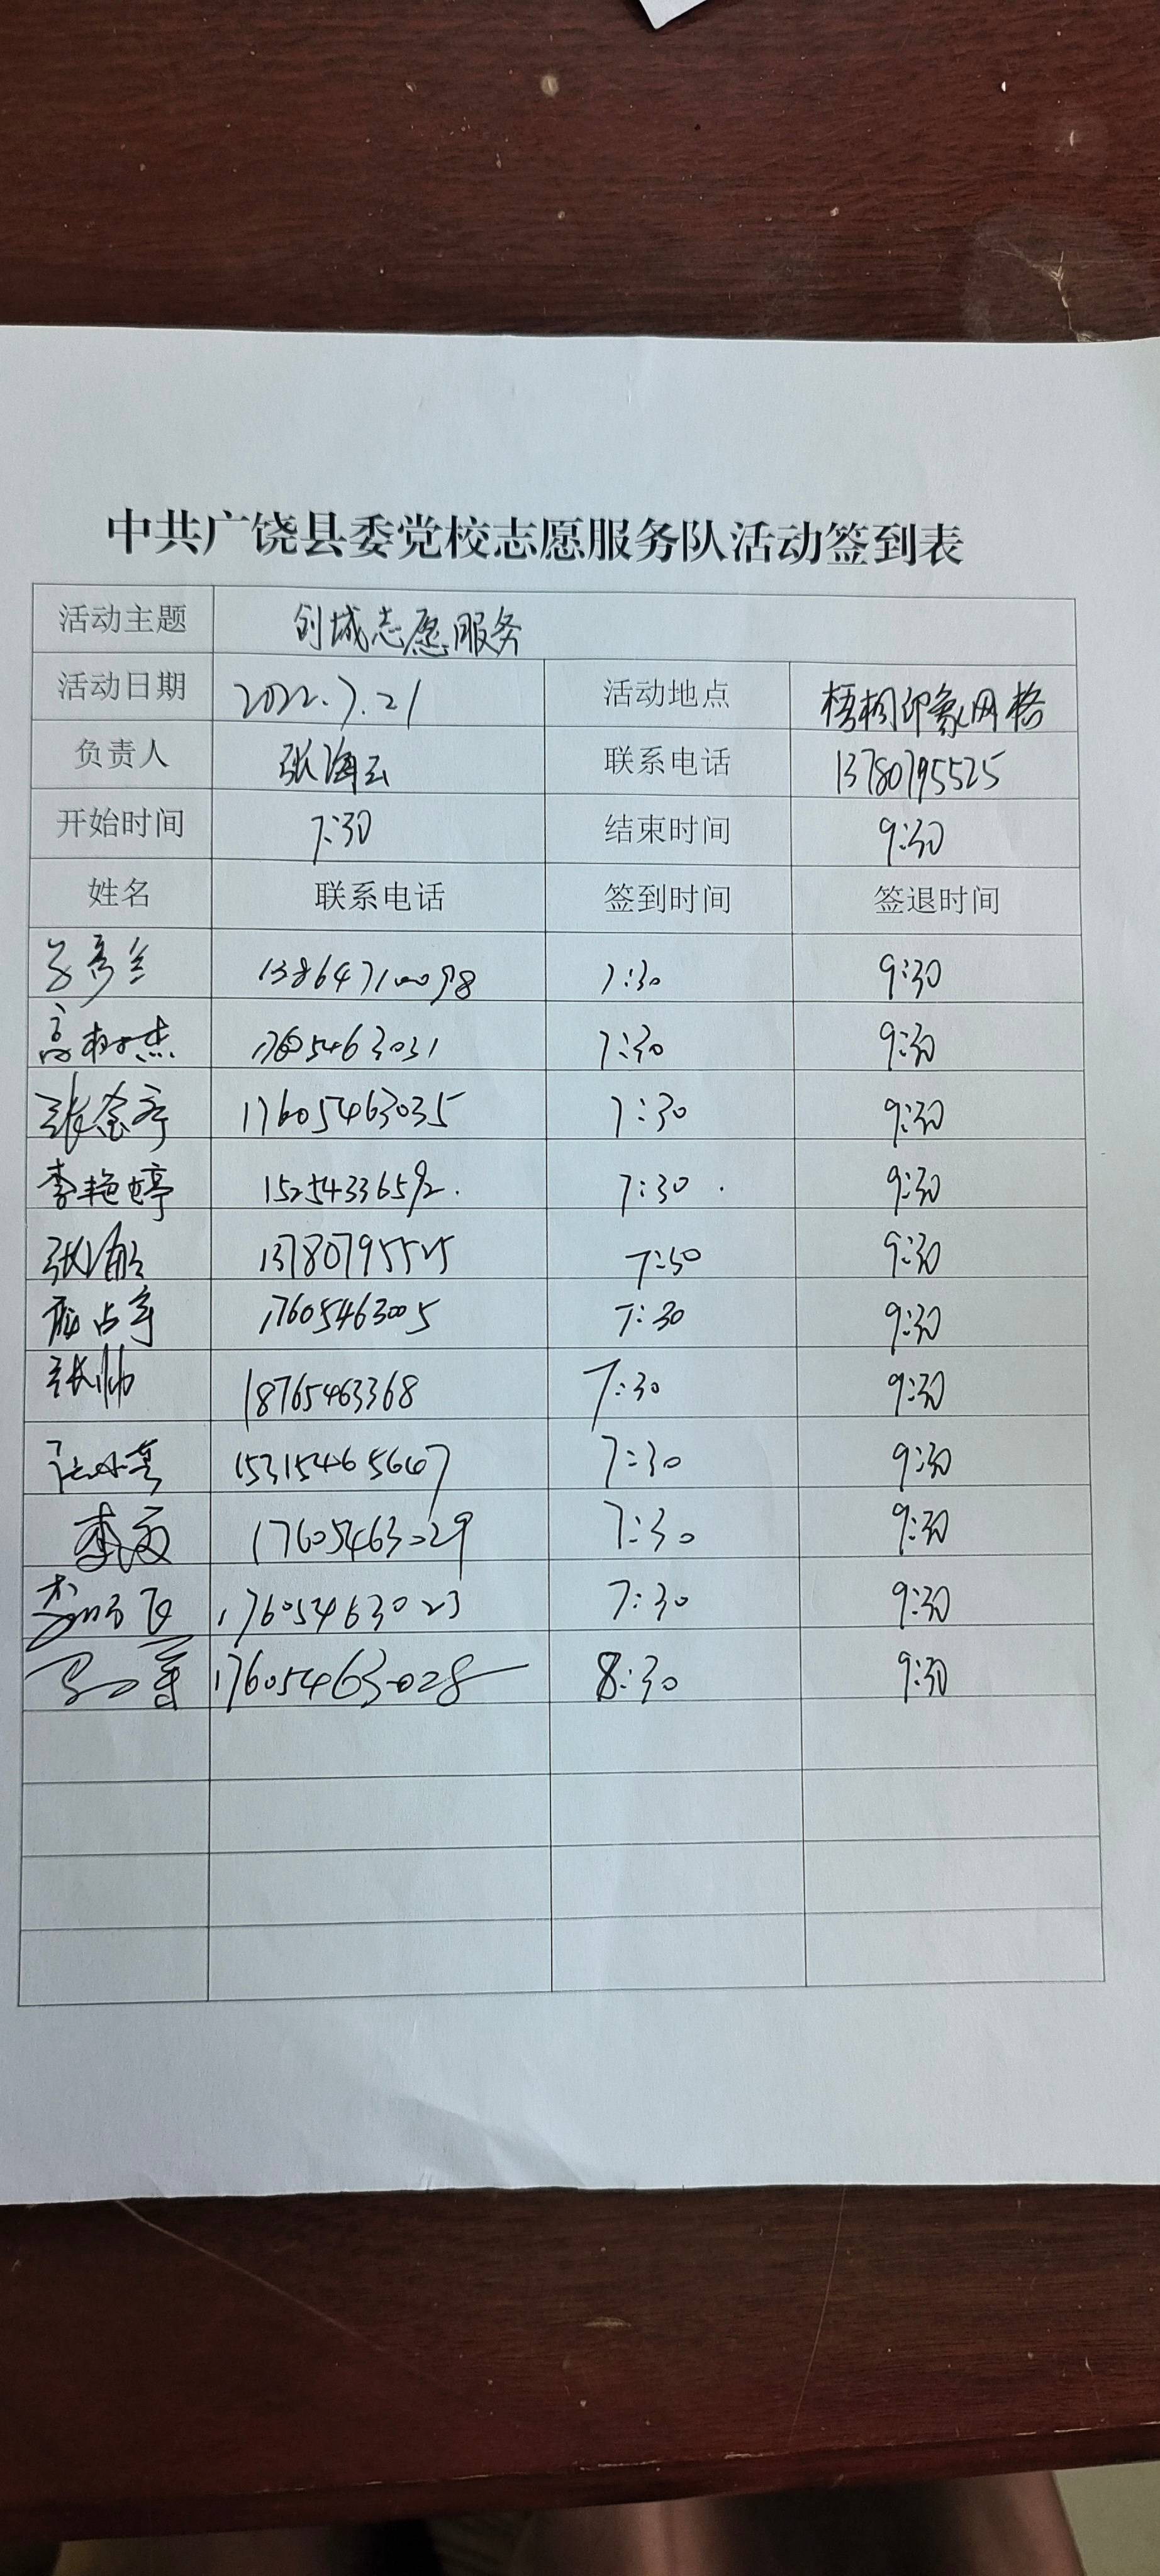 中共广饶县委党校志愿服务队活动签到表
活动主题 创城志愿服务
活动日期 2022.7.21 活动地点 梧桐印象网格
负责人 张海云 联系电话 13780795525
开始时间 7:30 结束时间 9:30
姓名 联系电话 签到时间 签退时间
13864710098 7:30 9:30
高树杰 17605463031 7:30 9:30
张金亭 17605463035 7:30 9:30
李艳婷 15254336592. 7:30 9:30
张海云 13780795525 7:30 9:30
17605463005 7:30 9:30
张帅 18765463368 7:30 9:30
15315465667 7:30 9:30
李敏 17605463029 7:30 9:30
17605463023 7:30 9:30
17605463028 8:30 9:30